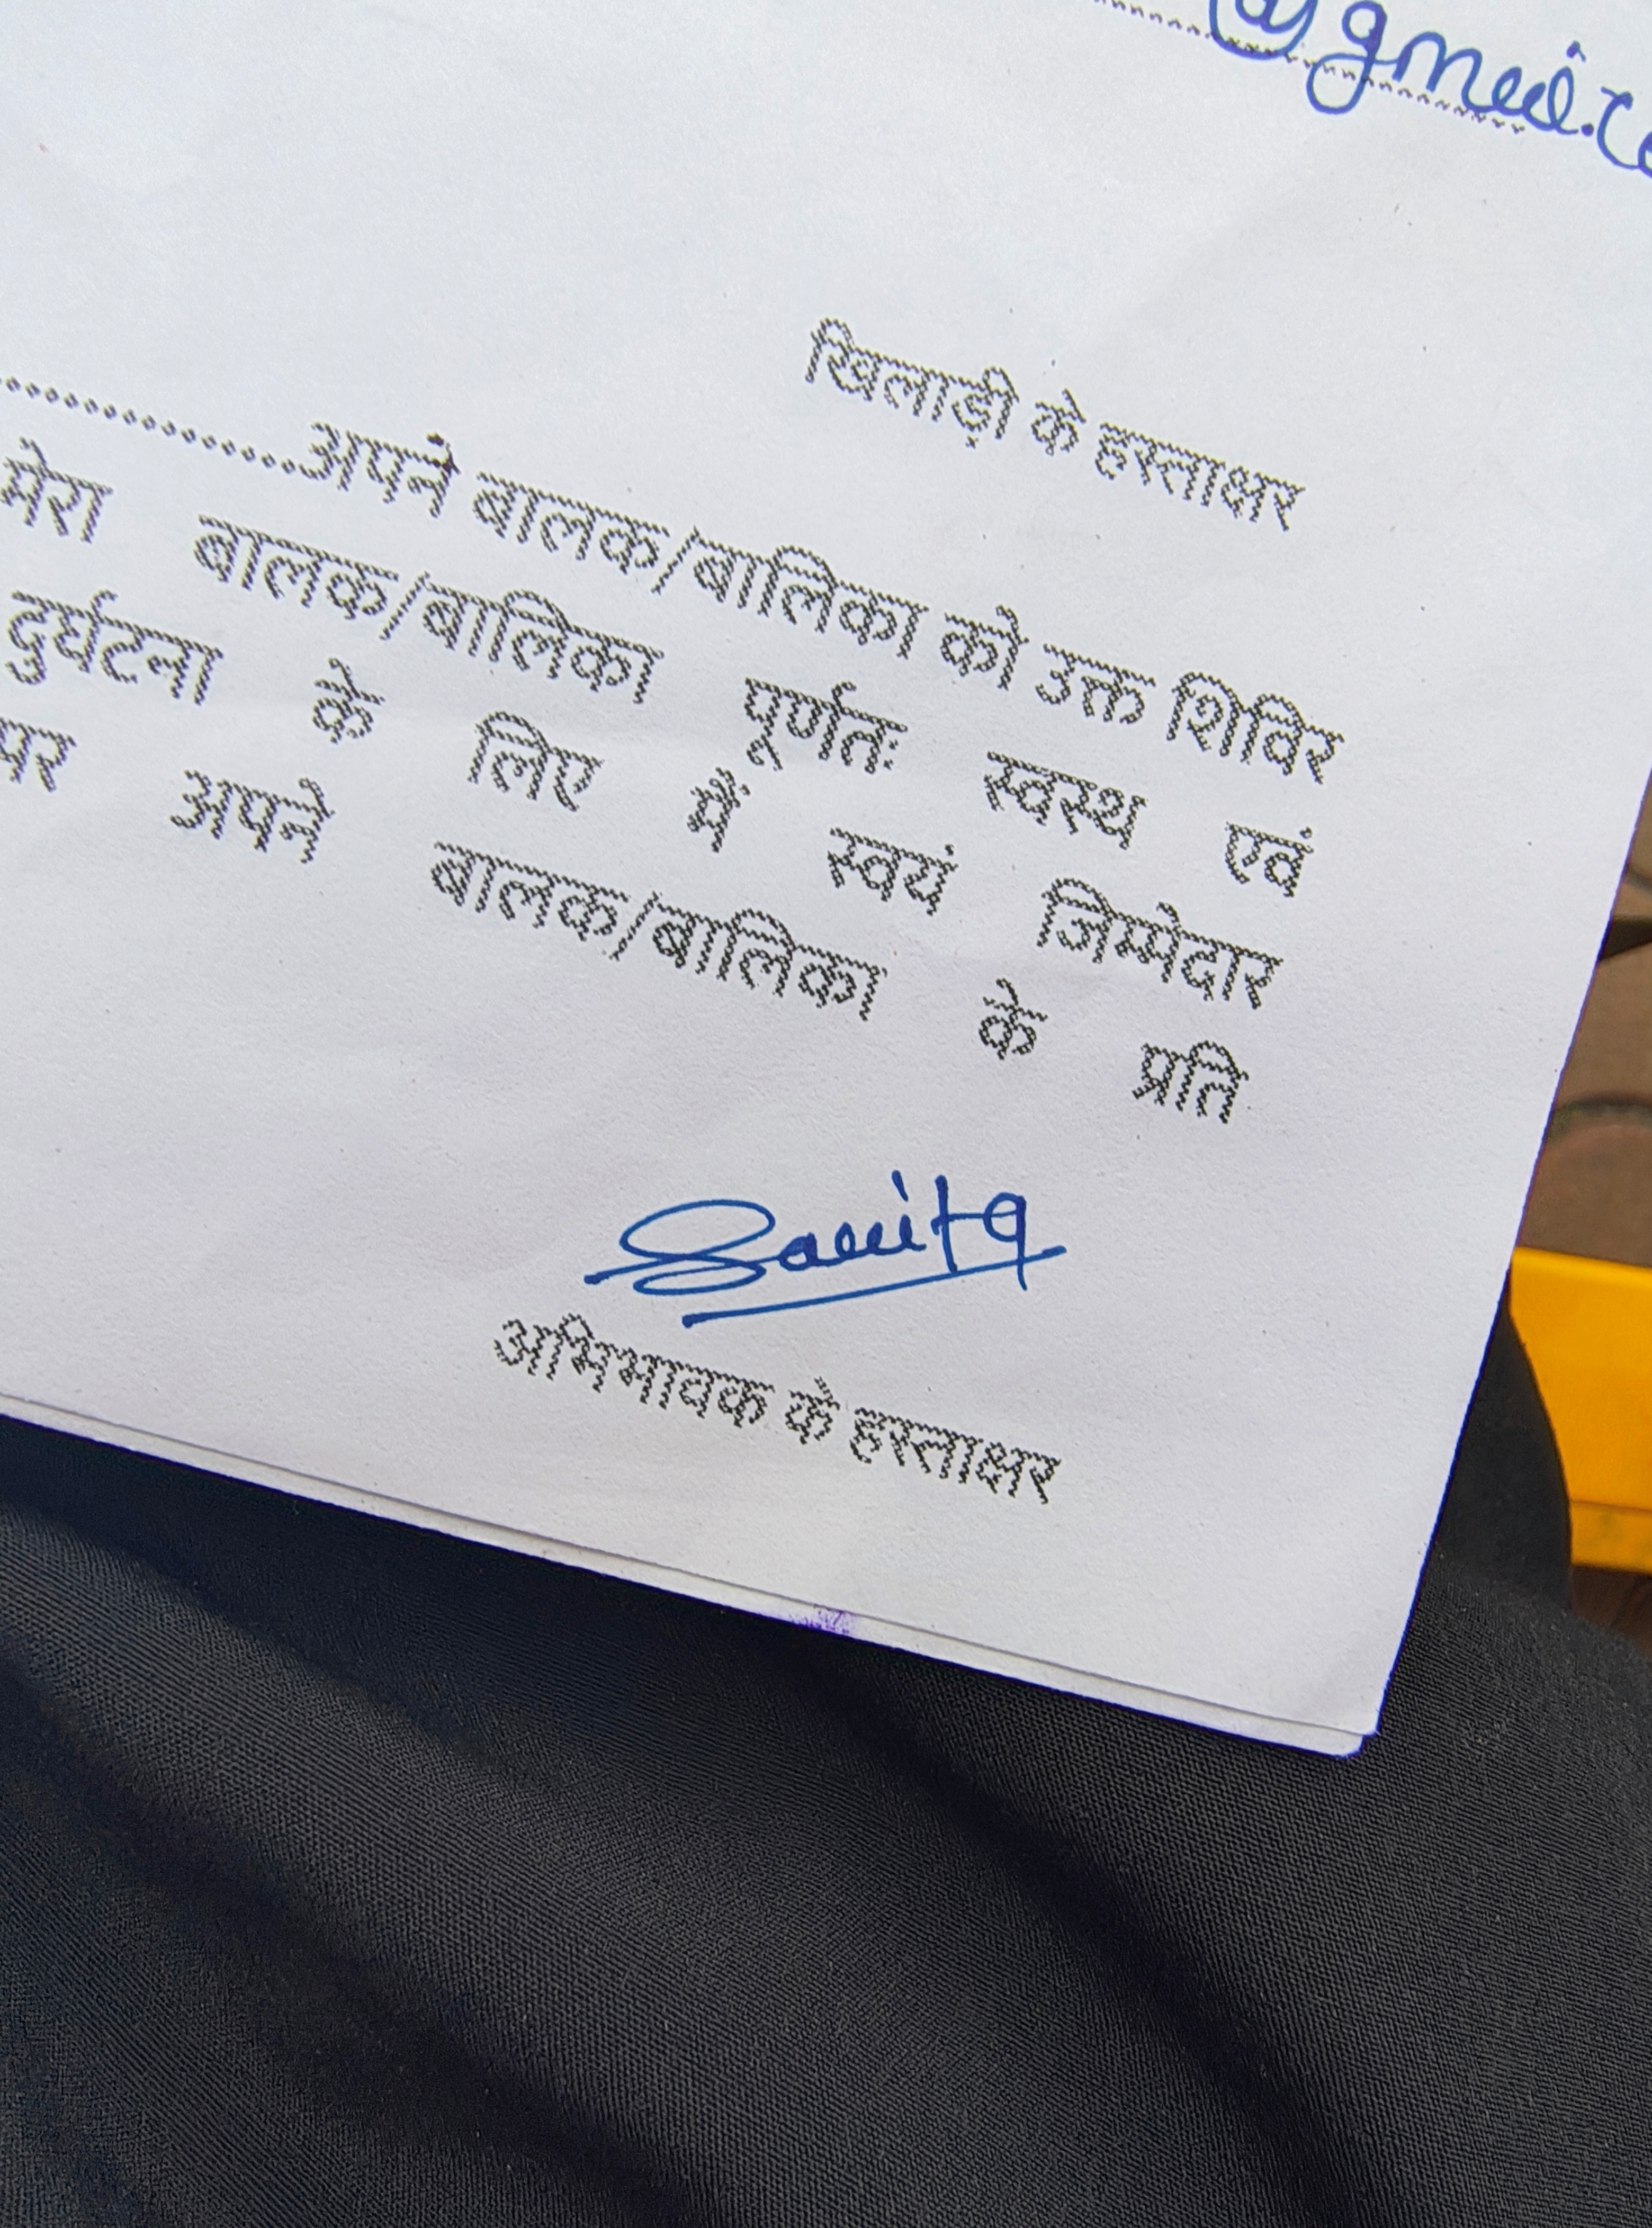 @gmail.co
खिलाड़ी के हस्ताक्षर
..................अपने बालक/बालिका को उक्त शिविर
मेरा बालक/बालिका पूर्णतः स्वस्थ एवं
दुर्घटना के लिए मैं स्वयं जिम्मेदार
पर अपने बालक/बालिका के प्रति
अभिभावक के हस्ताक्षर